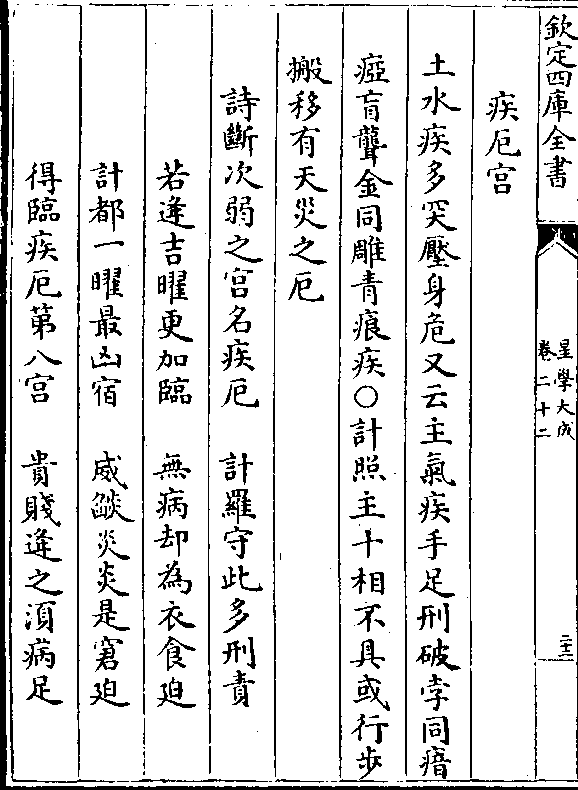 欽定四庫全書
星學大成
卷二十二
二十二
疾厄宮
土水疾多突壓身危又云主氣疾手足刑破孛同瘖
瘂盲聾金同雕青痕疾○計照主十相不具或行步
搬移有天災之厄
詩斷次弱之宮名疾厄　計羅守此多刑責
若逢吉曜更加臨　無病却為衣食廹
計都一曜最凶宿　威燄炎炎是窘廹
得臨疾厄第八宮　貴賤逢之須病足